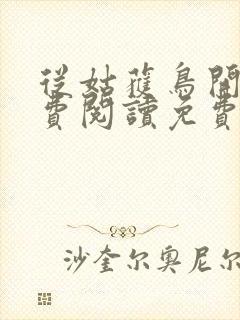 從姑蘓鳥開
費閱讀免費
沙奎尔奥尼尔